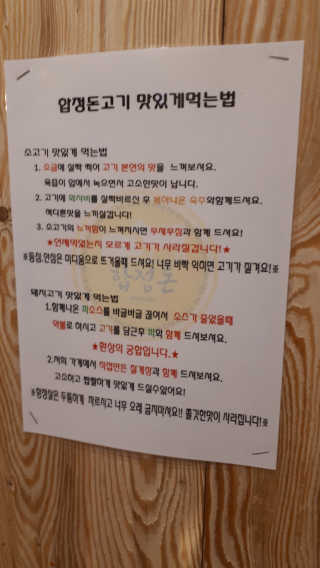 합정돈고기 맛있게먹는법
소고기 맛있게 먹는법
1. 소금에 살짝 찍어 고기 본연의 맛을 느껴보셔요.
육즙이 입에서 녹으면서 고소한맛이 납니다.
2. 고기에 와사비를 살짝바르신 후 불야나온 숙주와함께드셔요.
색다른맛을 느끼실겁니다!
3. 소고기의 느끼함이 느껴지시면 무쌔우침과 함께 드셔요!
★언제먹었는지 모르게 고기가 사라질겁니다!★
※등심,안심은 미디움으로 뜨거울때 드셔요! 너무 바짝 익히면 고기가 질겨요!※
합정돈
돼지고기 맛있게 먹는법
1.함께나온 파소스를 바글바글 끓여서 소스가 졸았을때
약불로 하시고 고기를 담근후 파와 함께 드셔보셔요.
★환상의 궁합입니다.★
2.저희 가게에서 직접만든 칠게장과 함께 드셔보셔요.
고소하고 짭짤하게 맛있게 드실수있어요!
※항정살은 두툼하게 자르시고 너무 오래 굽지마셔요!! 쫄깃한맛이 사라집니다!※